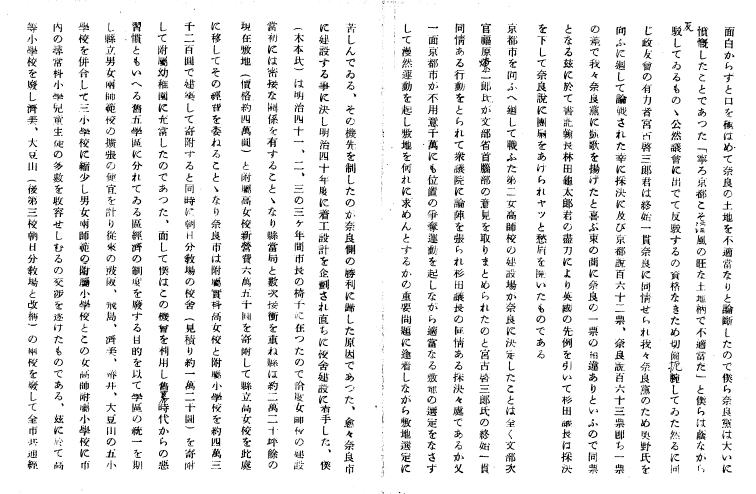 面白からすと口を極はめて奈良の土地を不適當なりと論斷したので僕ら奈良黨は大いに
憤慨したことであつた「寧ろ京都こそ淫風の旺な土地柄で不適當た」と僕らは蔭なから
反駁してゐるもの丶公然議會に出でて反駁するの資格なきため切齒扼腕してゐた然るに同
じ政友會の有力者宮古啓三郎君は終始一貫奈良に同情せられ我々奈良黨のため奥野氏を
向ふに廻して論戰された幸に採決に及び京都説百六十二票、奈良説百六十三票卽ち一票
の差で我々奈良黨に凱歌を揚げたと喜ぶ束の間に奈良の一票の
となる玆に於て書記翰長林田龜太郎君の盡力により英國の先例を引いて杉田議長は採決
を下して奈良説に團扇をあけられヤツと愁眉を開いたものである
京都市を向ふへ廻して戰ふた第二女高師校の建設場か奈良に決定したことは全く文部次
官福原鐐二郎氏が文部省首腦部の意見を取りまとめられたのと宮古啓三郎氏の終始一貫
同情ある行動をとられて衆議院に論陣を張られ杉田議長の同情ある採決々處であるか又
一面京都市が不用意千萬にも位置の爭奪運動を起しながら適當なる敷地の選定をなさす
して漫然運動を起し敷地を何れに求めんとするかの重要問題に逢着しながら敷地選定に
苦しんでゐる、その機先を制したのか奈良側の勝利に歸した原因であつた、愈々奈良市
に建設する事に決し明治四十年度に着工設計を企劃され直ちに校舍建設に着手した、僕
(木本氏)は明治四十一、二、三の三ケ年間市長の椅子に在つたので
當初には密接な關係を有すること丶なり縣當局と數次接衝を重ね縣は約二萬二千坪餘の
現在敷地(價格約四萬圓)と附屬高女校新營費六萬五千圓を寄附して縣立高女校を此處
に移してその經費を委ねること丶なり奈良市は附屬實科高女校と附屬小學校を約四萬三
千二百圓で建築して寄附すると同時に朝日分敎場の校舍(見積り約一萬二千圓)を寄附
して附屬幼稚園に充當したのであつた、而して僕はこの機會を利用し舊幕時代からの惡
習慣ともいへる舊五學區に分れてゐる區經濟の制度を廢する目的を以て學區の統一を期
し縣立男女兩師範校の擴張の便宜を計り從來の鼓阪、飛鳥、濟美、椿井、大豆山の五小
學校を併合して三小學校に縮少し男女兩師範の附屬小學校とこの女高師附屬小學校に市
内の尋常科小學兒童生徒の多數を收容せしむるの交渉を遂けたものである、玆に於て高
等小學校を廢し濟美、大豆山(後第三校朝日分敎場と改稱)の兩校を廢して全市共通經